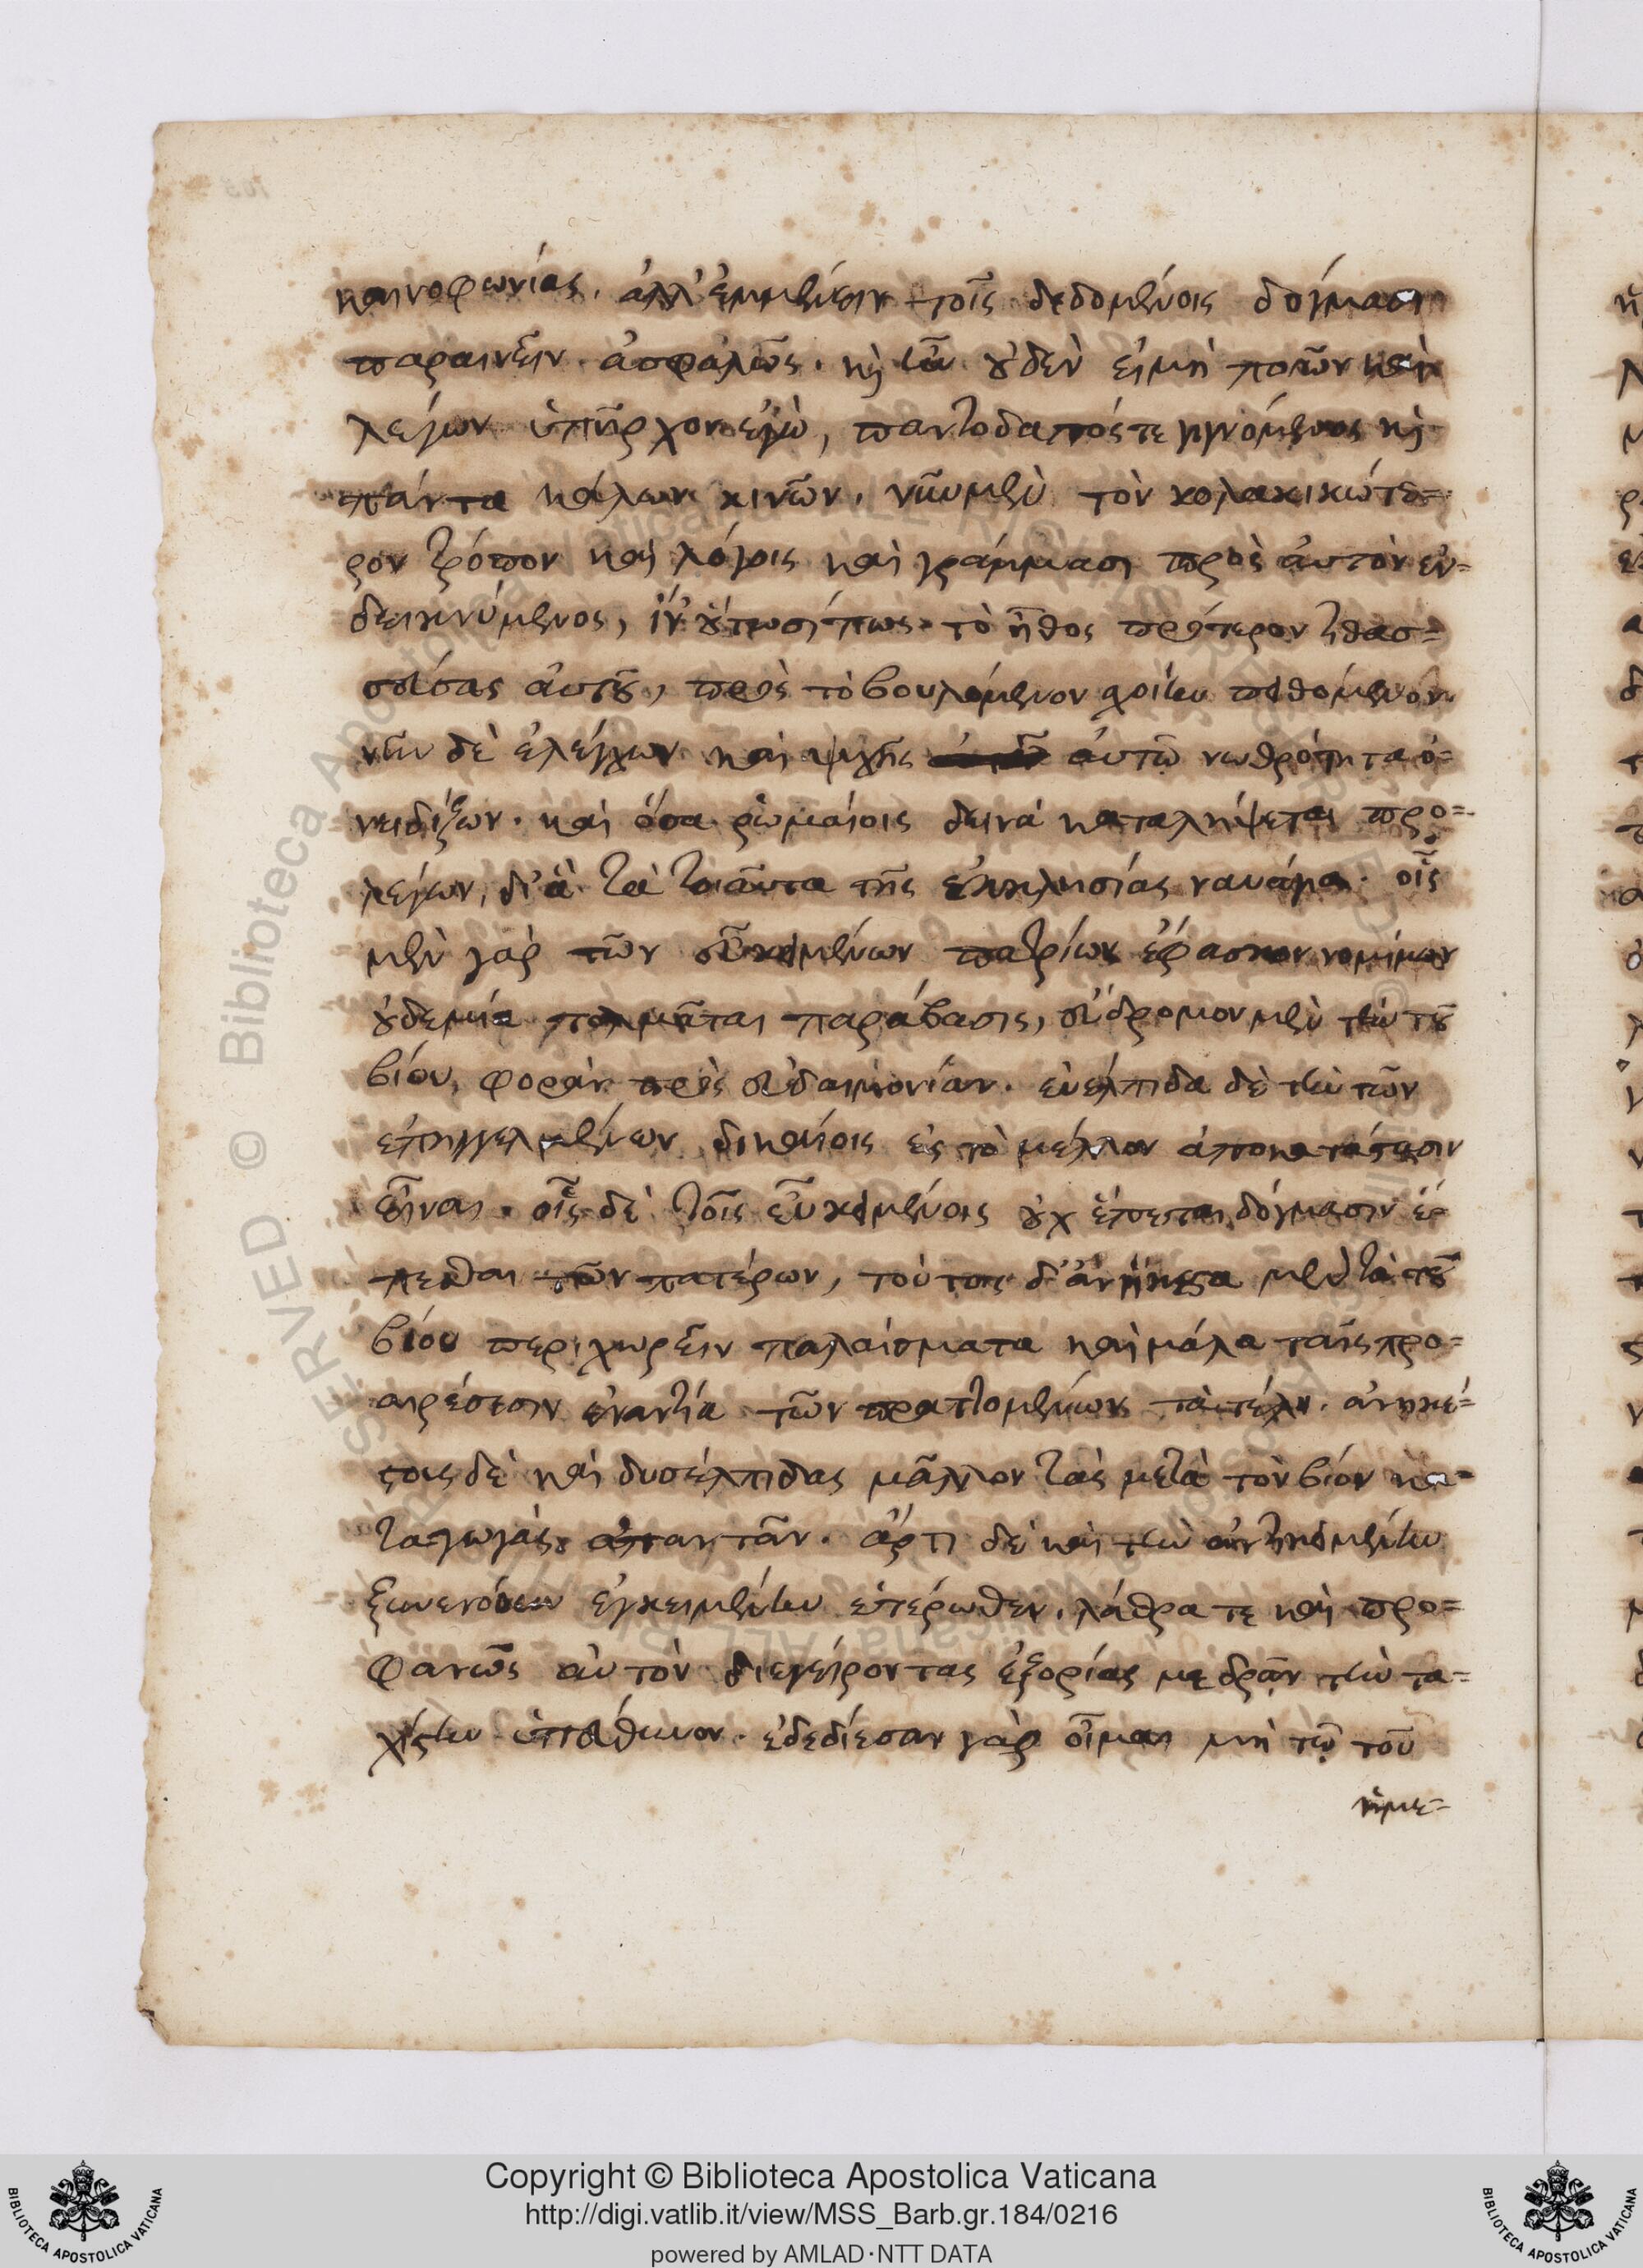 καινοφωνίας. ἀλλ' ἐμμένειν τοῖς δεδομένοις δόγμασι
παραινεῖν ἀσφαλῶς. κỳ ἦν ȣ̓δὲν εἰ μὴ ποιῶν καὶ
λέγων ὑπῆρχον ἐγὼ, παντοδαπός τε γιγνόμενος κỳ
πάντα κάλων κινῶν. νῦν μὲν τὸν κολακικώτε=
ρον τρόπον καὶ λόγοις καὶ γράμμασι πρὸς ἀυτὸν ἐν=
δεικνύμενος, ἵν' ȣ́τωσί πως τὸ ἦθος πρότερον τιθασ=
σεύσας ἀυτȣ͂, πρὸς τὸ βουλόμενον χοίην πειθόμενον.
νῦν δὲ ἐλέγχων καὶ ψυχῆς ἀυτῶ νωθρότητα ὀ=
νειδίζων. καὶ ὅσα ῥωμαίοις δεινὰ καταλήψεται προ=
λέγων, δι' ἃ τὰ τοιαῦτα τῆς ἐκκλησίας ναυάγια. οἷς
μὲν γὰρ τῶν εὖ κειμένων πατρίων ἔφασκον νομίμων
ȣ̓δεμία τολμᾶται παράβασις, εὔδρομον μὲν τὴν τȣ͂
βίου, φορὰν πρὸς εὐδαιμονίαν. εὐέλπιδα δὲ τὴν τῶν
ἐπηγγελμένων δικαίοις ἐς τὸ μέλλον ἀποκατάστασιν
εἶναι. οἷς δὲ τοῖς εὖ κειμένοις ȣ̓χ ἕπεσθαι δόγμασιν ἔρ
πεισθαι τῶν πατέρων, τούτοις δ' ἀνήκεστα μὲν τὰ τȣ͂
βίου περιχωρεῖν παλαίσματα καὶ μάλα ταῖς προ=
αιρέσεσιν ἐναντία τῶν πραττομένων τὰ τέλη. ἀνηκέ=
στοις δὲ καὶ δυσέλπιδας μᾶλλον τὰς μετὰ τὸν βίον κα=
ταγωγὰς ἀπαντᾶν. ἄρτι δὲ καὶ τὴν ἀντικειμένην
ξυνενόουν ἐγκειμένην ἑτέρωθεν. λάθρα τε καὶ προ=
φανῶς ἀυτὸν διεγείροντας ἐξορίας με δρᾶν τὴν τα=
χίστην ὑπεύθυνον. ἐδεδίεσαν γὰρ οἶμαι μὴ τῶ τοῦ
ἡμε=
Copyright © Biblioteca Apostolica Vaticana
http://digi.vatlib.it/view/MSS_Barb.gr.184/0216
powered by AMLAD·NTT DATA
BIBLIOTECA APOSTOLICA VATICANA
BIBLIOTECA APOSTOLICA VATICANA